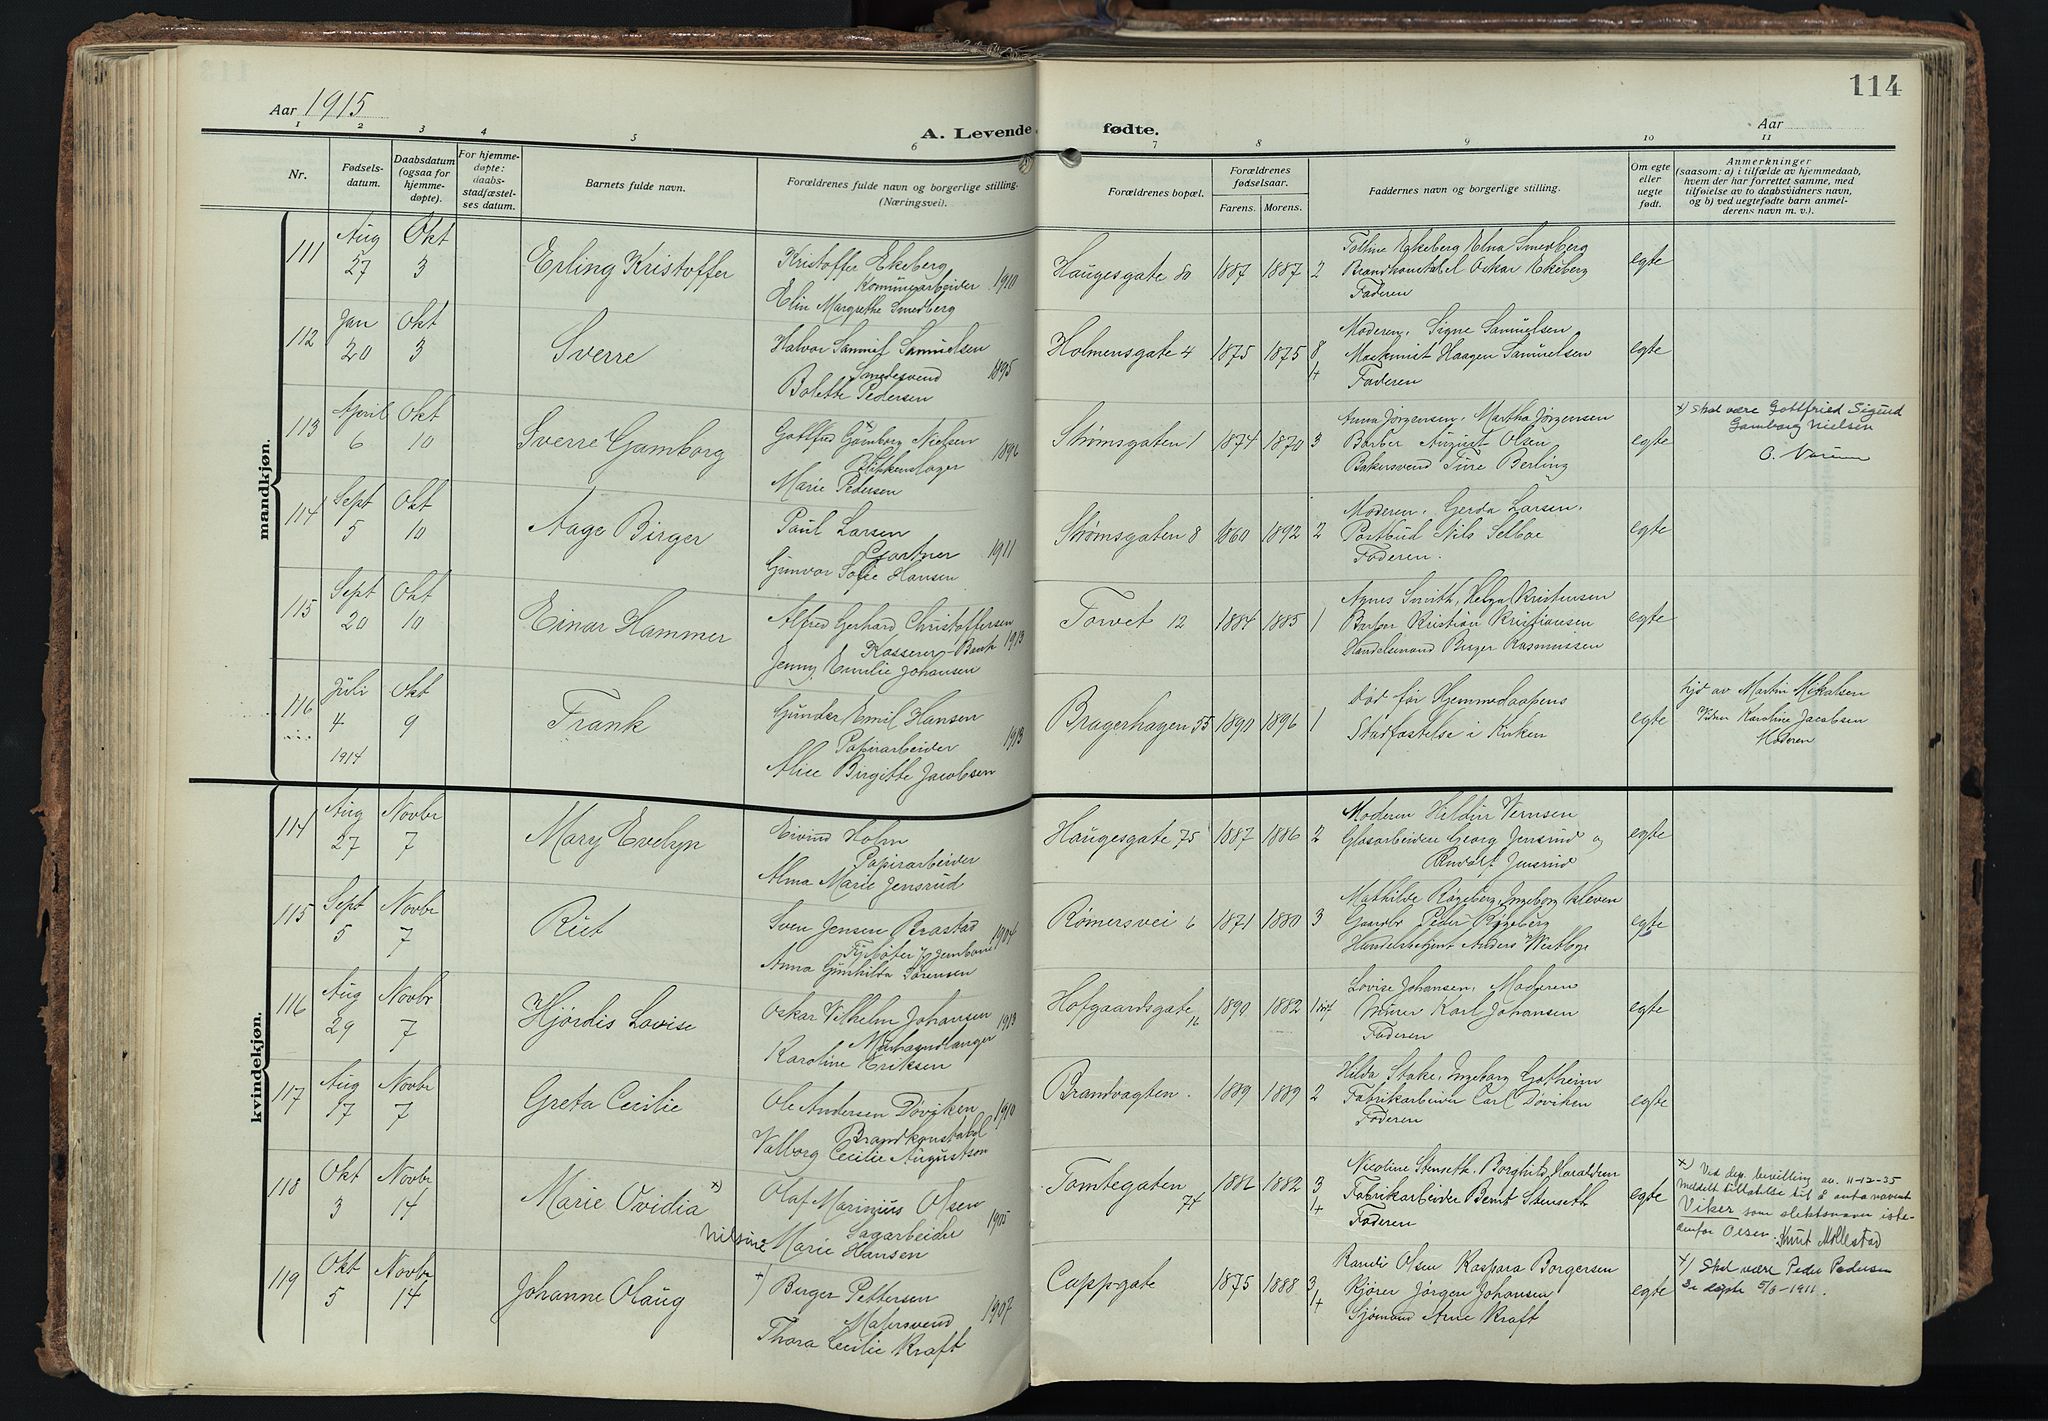 114
Aar 1915
A. Levende fødte.
Aar
1 2 3 4 5 6 7 8 9 10 11
Nr.
Fødsels-
datum.
Daabsdatum
(ogsaa for
hjemme-
døpte).
For hjemme-
døpte:
daabs-
stadfæstel-
ses datum.
Barnets fulde navn.
Forældrenes fulde navn og borgerlige stilling.
(Næringsvei).
Forældrenes bopæl.
Forældrenes
fødselsaar.
Farens. Morens.
Faddernes navn og borgerlige stilling.
Om egte
eller
uegte
født.
Anmerkninger
(saasom: a) i tilfælde av hjemmedaab,
hvem der har forrettet samme, med
tilføielse av to daabsvidners navn,
og b) ved uegtefødte barn anmel-
derens navn m. v.).
mandkjøn.
111
Aug
27
Okt
3
Erling Kristoffer
Kristoffer Ekeberg
Kommunearbeider 1910
Elin Margrethe Smedberg
Haugesgate 80
1887 1887 2
Ekeberg Elna Smedberg
Brandkonstabel Oskar Ekeberg
Faderen
egte
112
Jan
20
Okt
3
Sverre
Halvor Samuelsen
Smedesvend 1895
Bolette Pedersen
Holmensgate 4
1875 1875 8
1+
Moderen. Signe Samuelsen
Maskinist Haagen Samuelsen
Faderen
egte
113
April
6
Okt
10
Sverre Gamborg
Gottfred Gamborg Nielsen
Blikkenslager 1896
Marie Pedersen
Strømsgaten 1
1874 1870 3
Anna Jørgensen. Martha Jørgensen
Barber August Olsen
Bakersvend Ture Berling
egte
x) skal være Gottfried Sigurd
Gamborg Nielsen
114
Sept
5
Okt
10
Aage Birger
Paul Larsen
Gartner 1911
Gunvor Sofie Hansen
Strømsgaten 8
1860 1892 2
Moderen. Gerda Larsen.
Postbud Nils Selboe
Faderen.
egte
115
Sept
20
Okt
10
Einar Hammer
Alfred Gerhard Christoffersen
Kasserer-Bank 1913
Jenny Emilie Johansen
Torvet 12
1884 1885 1
Agnes Smith, Helga Kristensen
Kristian Kristiansen
Handelsmand Birger Rasmussen
egte
116
Juli
4
1914
Okt
9
Frank
Gunder Emil Hansen
Papirarbeider 1913
Alice Birgitte Jacobsen
Bragerhagen 55
1890 1896 1
Død før Hjemmedaapens
Stadfæstelse i Kirken
egte
Hjd av Martin Mikalsen
Karoline Jacobsen
Moderen
kvindekjøn.
114
Aug
27
Novbr
7
Mary Evelyn
Eivind Holm
Papirarbeider
Alma Marie Jensrud
Haugesgate 75
1887 1886 2
Moderen Hildur
Glasarbeidere Georg Jensrud og
Jensrud
egte
115
Sept
5
Novbr
7
Rut
Sven Jensen Brastad
Fyrbøter v/jernbane 1904
Anna Gunhilda Sørensen
Rømersvei 6
1871 1880 3
Mathilde Røgeberg, Ingeborg Kleven
Gaardbr Peder Røgeberg
Handelsbetjent Anders Westbye
egte
116
Aug
29
Novbr
7
Hjørdis Lovise
Oskar Vilhelm Johansen
Murhaandlanger 1913
Karoline Eriksen
Hofgaardsgate
16
1890 1882 1
Lovise Johansen, Moderen
Murer Karl Johansen
Faderen
egte
117
Aug
17
Novbr
7
Greta Cecilie
Ole Andersen Døviken
Brandkonstabel 1910
Valborg Cecilie Augustson
Brandvagten.
1889 1889 2
Hilda Stake, Ingeborg Gotheim
Fabrikarbeider Carl Døviken
Faderen
egte
118
Okt
3
Novbr
14
Marie Ovidia x)
Nilsine
Olaf Marinius Olsen
Sagarbeider 1905
Marie Hansen
Tomtegaten
74
1882 3
1+
Nicoline Stenseth. Borghild Haraldsen
Fabrikarbeider Bernt Stenseth
Faderen
egte
x) Ved dep. bevilling av 11-12-35
meddelt tillatelse til å anta navnet
Viker som slektsnavn iste-
denfor Olsen. Knut Mollestad
119
Okt
5
Novbr
14
Johanne Olaug
+) Birger Pettersen
Malersvend 1907
Thora Cecilie Kraft
Cappsgate
1875 1888 3
1+
Randi Olsen Kaspara Borgersen
Kjører Jørgen Johansen
Sjømand Arne Kraft
egte
x) Skal være Peder Pedersen